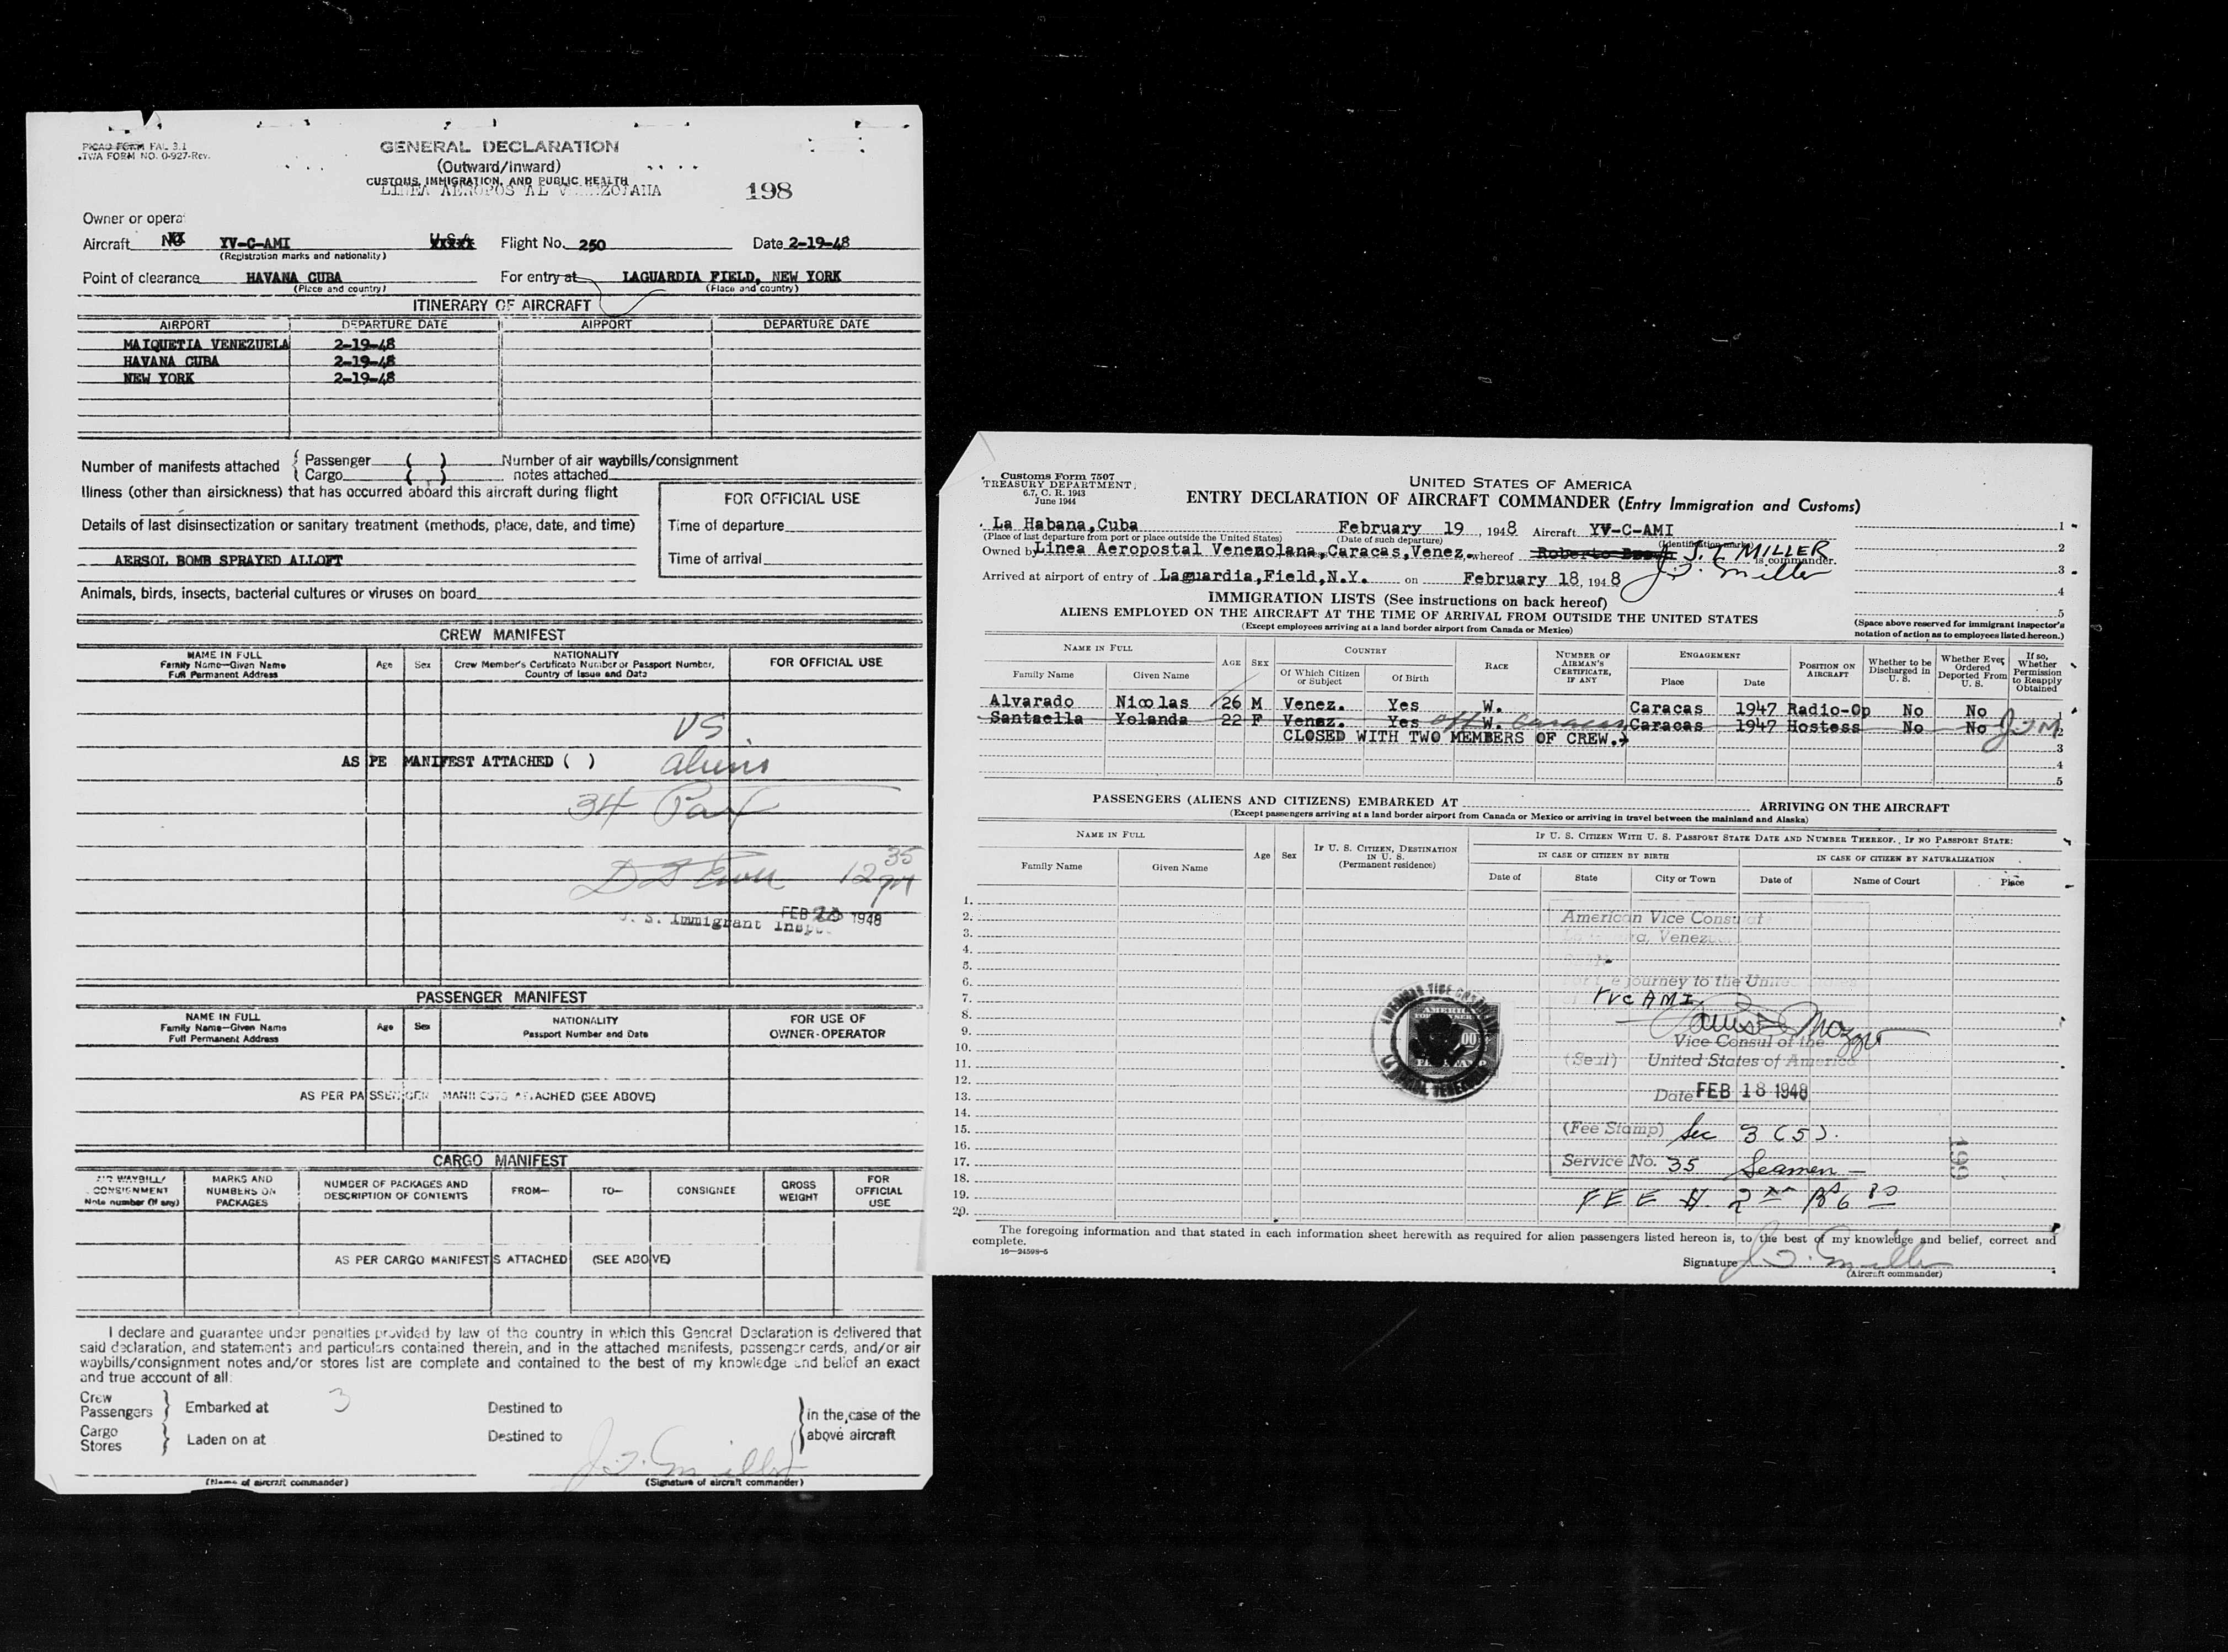 PICAO FORM FAL 3.1
TWA FORM NO. 0-927-Rev.
GENERAL DECLARATION
(Outward/Inward)
CUSTOMS, IMMIGRATION, AND PUBLIC HEALTH
LINEA AEROPOS AL VENEZOLANA
198
Owner or opera
Aircraft YV-C-AMI Flight No. 250 Date 2-19-48
(Registration marks and nationality)
Point of clearance HAVANA CUBA For entry at LAGUARDIA FIELD, NEW YORK
(Place and country) (Place and country)
ITINERARY OF AIRCRAFT
AIRPORT DEPARTURE DATE AIRPORT DEPARTURE DATE
MAIQUETIA VENEZUELA 2-19-48
HAVANA CUBA 2-19-48
NEW YORK 2-19-48
Number of manifests attached { Passenger ( ) Number of air waybills/consignment
Cargo ( ) notes attached
Illness (other than airsickness) that has occurred aboard this aircraft during flight
Details of last disinsectization or sanitary treatment (methods, place, date, and time)
AERSOL BOMB SPRAYED ALLOFT
Animals, birds, insects, bacterial cultures or viruses on board
FOR OFFICIAL USE
Time of departure
Time of arrival
CREW MANIFEST
NAME IN FULL
Family Name—Given Name
Full Permanent Address
Age Sex
NATIONALITY
Crew Member's Certificate Number or Passport Number,
Country of Issue and Date
FOR OFFICIAL USE
VS
AS PE MANIFEST ATTACHED ( ) aliens
34 Pax
12 35 PM
FEB 1948
U. S. Immigrant Insp
PASSENGER MANIFEST
NAME IN FULL
Family Name—Given Name
Full Permanent Address
Age Sex
NATIONALITY
Passport Number and Date
FOR USE OF
OWNER-OPERATOR
AS PER PASSENGER MANIFESTS ATTACHED (SEE ABOVE)
CARGO MANIFEST
AIR WAYBILL/
CONSIGNMENT
Note number (if any)
MARKS AND
NUMBERS ON
PACKAGES
NUMBER OF PACKAGES AND
DESCRIPTION OF CONTENTS
FROM— TO— CONSIGNEE
GROSS
WEIGHT
FOR
OFFICIAL
USE
AS PER CARGO MANIFESTS ATTACHED (SEE ABOVE)
I declare and guarantee under penalties provided by law of the country in which this General Declaration is delivered that
said declaration, and statements and particulars contained therein, and in the attached manifests, passenger cards, and/or air
waybills/consignment notes and/or stores list are complete and contained to the best of my knowledge and belief an exact
and true account of all:
Crew
Passengers } Embarked at 3 Destined to } in the case of the
Cargo
Stores } Laden on at Destined to above aircraft
J. T. Miller
(Name of aircraft commander) (Signature of aircraft commander)
Customs Form 7507
TREASURY DEPARTMENT
6.7, C. R. 1943
June 1944
UNITED STATES OF AMERICA
ENTRY DECLARATION OF AIRCRAFT COMMANDER (Entry Immigration and Customs)
La Habana,Cuba February 19 , 1948 Aircraft YV-C-AMI
(Place of last departure from port or place outside the United States) (Date of such departure) (Identification marks)
Owned by Linea Aeropostal Venezolana, Caracas,Venez, whereof Roberto J. T. MILLER is commander.
Arrived at airport of entry of Laguardia,Field,N.Y. on February 18, 1948 J. T. Miller
IMMIGRATION LISTS (See instructions on back hereof)
ALIENS EMPLOYED ON THE AIRCRAFT AT THE TIME OF ARRIVAL FROM OUTSIDE THE UNITED STATES
(Except employees arriving at a land border airport from Canada or Mexico)
1
2
3
4
5
(Space above reserved for immigrant inspector's
notation of action as to employees listed hereon.)
NAME IN FULL
Family Name Given Name
AGE SEX
COUNTRY
Of Which Citizen
or Subject
Of Birth
RACE
NUMBER OF
AIRMAN'S
CERTIFICATE,
IF ANY
ENGAGEMENT
Place Date
POSITION ON
AIRCRAFT
Whether to be
Discharged in
U. S.
Whether Ever
Ordered
Deported From
U. S.
If so,
Whether
Permission
to Reapply
Obtained
Alvarado Nicolas 26 M Venez. Yes W. Caracas 1947 Radio-Op No No 1
Santaella Yolanda 22 F Venez. Yes off W. Caracas Caracas 1947 Hostess No No JTM 2
CLOSED WITH TWO MEMBERS OF CREW. 3
4
5
PASSENGERS (ALIENS AND CITIZENS) EMBARKED AT ARRIVING ON THE AIRCRAFT
(Except passengers arriving at a land border airport from Canada or Mexico or arriving in travel between the mainland and Alaska)
NAME IN FULL
Family Name Given Name
Age Sex
IF U. S. CITIZEN, DESTINATION
IN U. S.
(Permanent residence)
IF U. S. CITIZEN WITH U. S. PASSPORT STATE DATE AND NUMBER THEREOF. IF NO PASSPORT STATE:
IN CASE OF CITIZEN BY BIRTH IN CASE OF CITIZEN BY NATURALIZATION
Date of State City or Town Date of Name of Court Place
1.
2.
3.
4.
5.
6.
7.
8.
9.
10.
11.
12.
13.
14.
15.
16.
17.
18.
19.
20.
American Vice Consul at
Venez
journey to the United
YVC AMI
Vice Consul of the
(Seal) United States of America
Date FEB 18 1948
(Fee Stamp) Sec 3 (5).
Service No. 35 Seamen —
FEE $ 2
199
The foregoing information and that stated in each information sheet herewith as required for alien passengers listed hereon is, to the best of my knowledge and belief, correct and
complete.
16—24598-5
Signature J. T. Miller
(Aircraft commander)